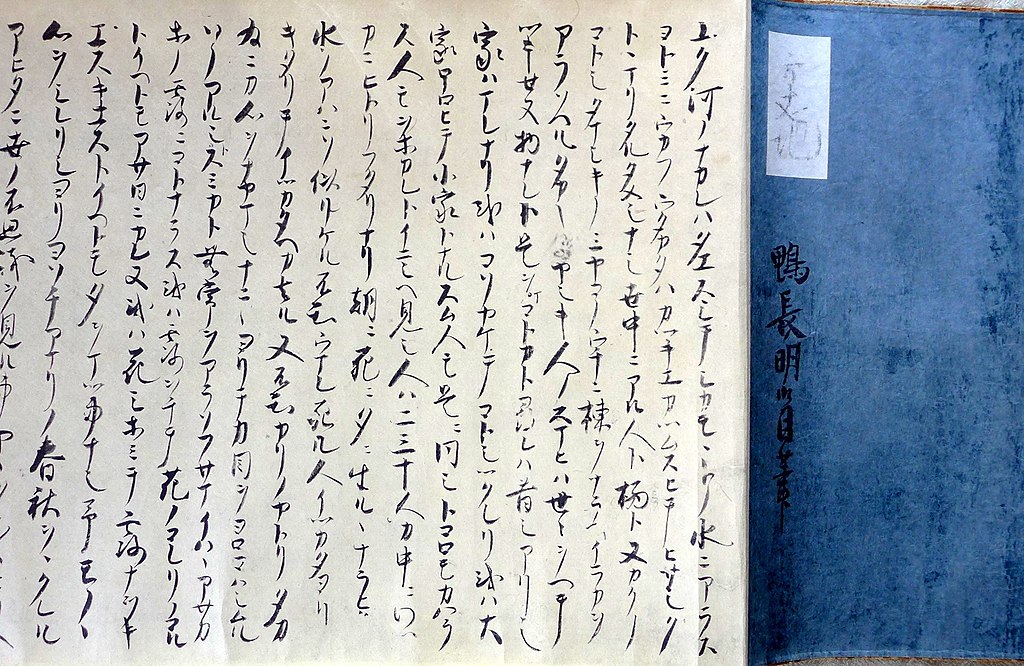 方丈記
鴨長明自筆
ユク河ノナカレハタエスシテシカモモトノ水ニアラス
ヨトミニウカフウタカタハカツキエカツムスヒテヒサシク
トマリタルタメシナシ世中ニアル人ト栖ト又カクノ
コトシタマシキノミヤコノウチニ棟ヲナラヘイラカヲ
アラソヘルタカキイヤシキ人ノスマヒハ世々ヲヘテ
ツキセヌ物ナレト是ヲマコトカト尋レハ昔シアリシ
家ハマレナリ或ハコソヤケテコトシツクレリ或ハ大
家ホロヒテ小家トナルスム人モ是ニ同シトコロモカハラ
ス人モヲホカレトイニシヘ見シ人ハ二三十人カ中ニワツ
カニヒトリフタリナリ朝ニ死ニ夕ニ生ルゝナラヒ
水ノアハニソ似リケル不知ウマレ死ル人イツカタヨリ
キタリテイツカタヘカ去ル又不知カリノヤトリタカ
為ニカ心ヲナヤマシナニゝヨリテカ目ヲヨロコハシムル
ソノアルシトスミカト無常ヲアラソフサマイハゝアサカ
ホノ露ニコトナラス或ハ露ヲチテ花ノコレリノコル
トイヘトモアサ日ニカレヌ或ハ花シホミテ露ナヲキ
エスキエストイヘトモタヲマツ事ナシ予モノゝ
心ヲシレリシヨリヨソチアマリノ春秋ヲゝクレル
アヒタニ世ノ不思議ヲ見ル事